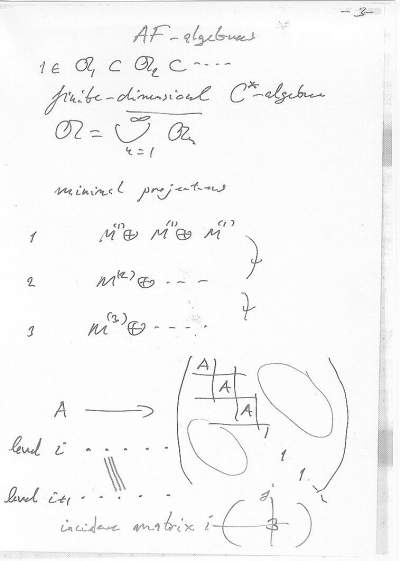 - 3 -
AF-algebras
1 ∈ 𝔄₁ ⊂ 𝔄₂ ⊂ ····
finite-dimensional C*-algebra
𝔄 = ⋃ 𝔄ₙ
∞
n=1
minimal projections
1 M⁽¹⁾⊕ M⁽¹⁾⊕ M⁽¹⁾
2 M⁽²⁾⊕ - - -
3 M⁽³⁾⊕ - - - -
A
A
A
A ⟶
1
level i · · · · · ·
1
1
level i+1 · · · · ·
j
incidence matrix i ( 3 )